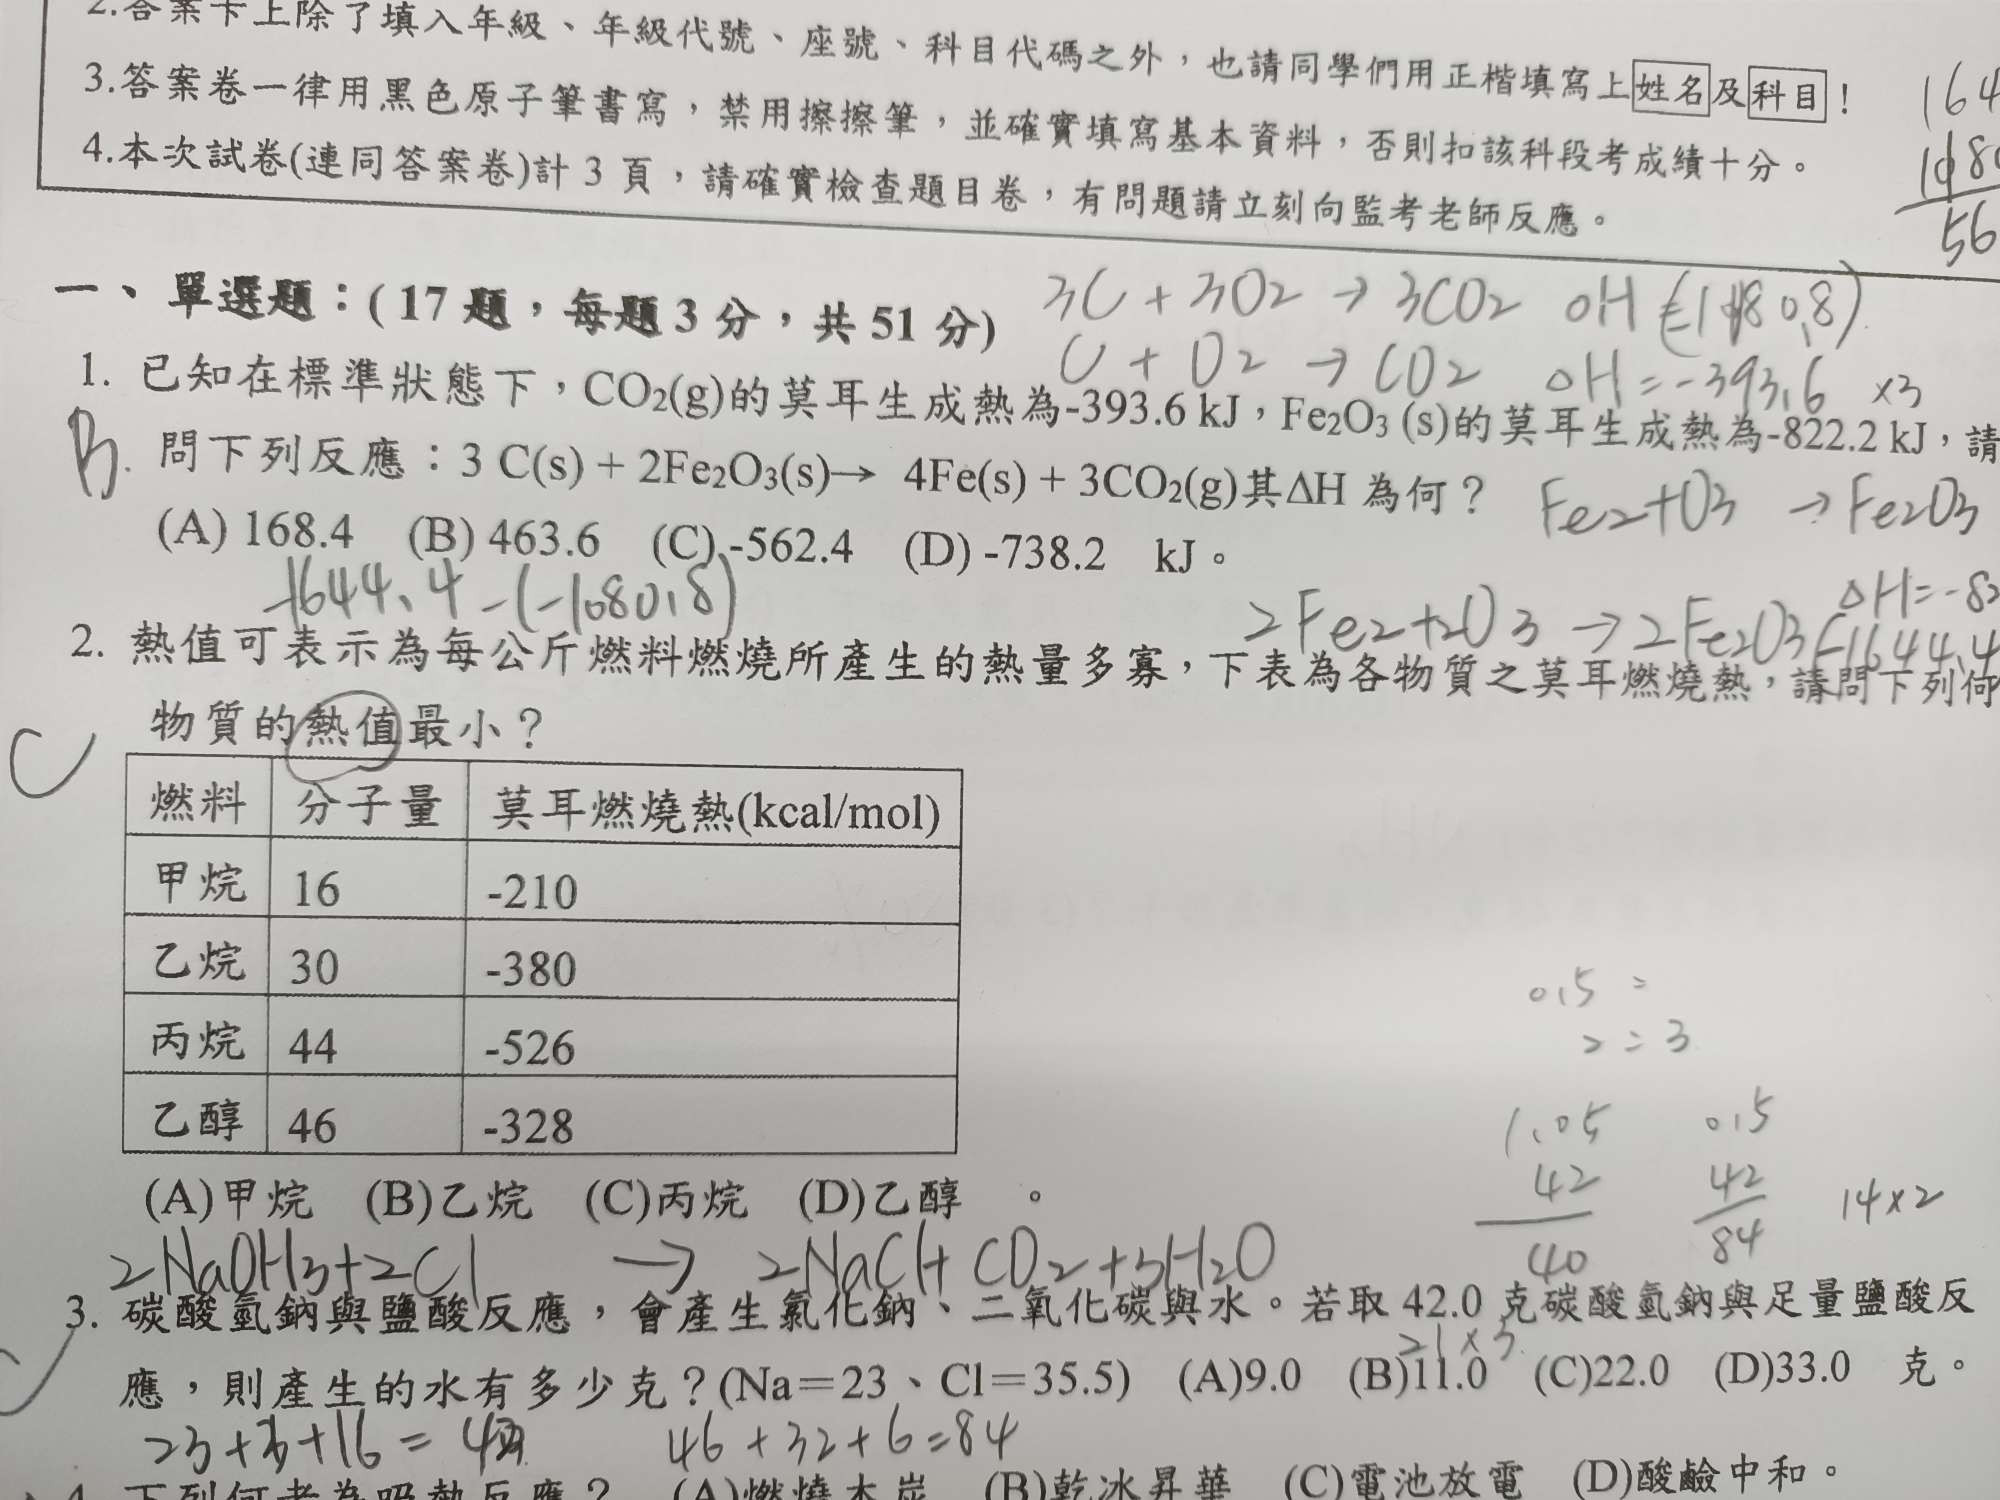 2.答案卡上除了填入年級、年級代號、座號、科目代碼之外，也請同學們用正楷填寫上姓名及科目！
3.答案卷一律用黑色原子筆書寫，禁用擦擦筆，並確實填寫基本資料，否則扣該科段考成績十分。
4.本次試卷(連同答案卷)計 3 頁，請確實檢查題目卷，有問題請立刻向監考老師反應。
164
56
一、單選題：( 17 題，每題 3 分，共 51 分)
3C + 3O2 → 3CO2
C + O2 → CO2 ΔH = -393.6 ×3
1. 已知在標準狀態下，CO₂(g)的莫耳生成熱為-393.6 kJ，Fe₂O₃ (s)的莫耳生成熱為-822.2 kJ，請
B.
問下列反應：3 C(s) + 2Fe₂O₃(s)→ 4Fe(s) + 3CO₂(g)其ΔH 為何？
Fe2+O3 → Fe2O3
(A) 168.4 (B) 463.6 (C) -562.4 (D) -738.2 kJ。
-1644.4 -(-1080.8)
ΔH=-82
2Fe2+2O3 → 2Fe2O3 -1644.4
2. 熱值可表示為每公斤燃料燃燒所產生的熱量多寡，下表為各物質之莫耳燃燒熱，請問下列何
物質的熱值最小？
C
燃料 分子量 莫耳燃燒熱(kcal/mol)
甲烷 16 -210
乙烷 30 -380
丙烷 44 -526
乙醇 46 -328
0.5 =
2 = 3
1.05 0.5
42 42
40 84 14×2
(A)甲烷 (B)乙烷 (C)丙烷 (D)乙醇 。
2NaOH3+2Cl → 2NaCl+ CO2+3H2O
3. 碳酸氫鈉與鹽酸反應，會產生氯化鈉、二氧化碳與水。若取 42.0 克碳酸氫鈉與足量鹽酸反
21×3
應，則產生的水有多少克？(Na＝23、Cl＝35.5) (A)9.0 (B)11.0 (C)22.0 (D)33.0 克。
46+32+6=84
4. 下列何者為吸熱反應？ (A)燃燒木炭 (B)乾冰昇華 (C)電池放電 (D)酸鹼中和。